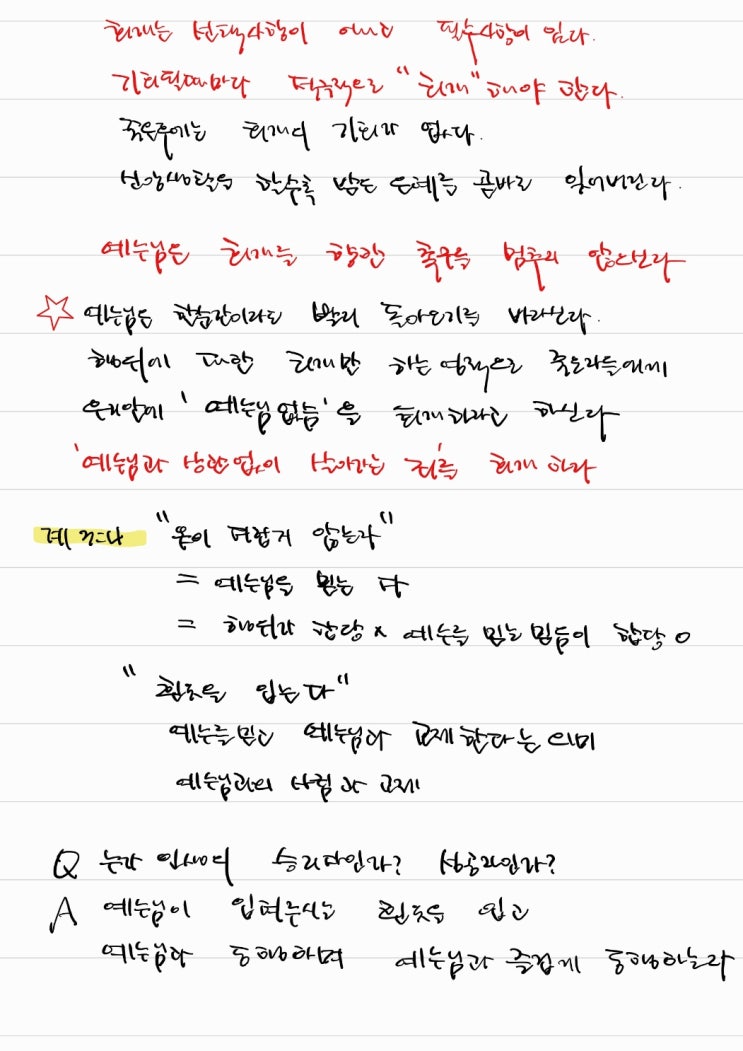 회개는 선택사항이 아니고 필수사항이 있다.
기회될때마다 적극적으로 "회개"해야 한다.
죽은후에는 회개의 기회가 없다.
신앙생활을 할수록 받은 은혜를 곧바로 잊어버린다.
예수님은 회개를 향한 촉구를 멈추지 않으신다
☆ 예수님은 한순간이라도 빨리 돌아오기를 바라신다.
행위에 따란 회개만 하는 영적으로 죽은자들에게
우리안에 '예수님 없음'을 회개하라고 하신다
'예수님과 상관없이 살아가는 죄'를 회개 하라
계 3:4 "옷이 더럽게 않는자"
= 예수님을 믿는 자
= 행위가 합당 x 예수를 믿는 믿음이 합당 o
"흰옷을 입는다"
예수를믿고 예수님과 교제한다는 의미
예수님과의 사귐과 교제
Q 누가 인생의 승리자인가? 성공자인가?
A 예수님이 입혀주시는 흰옷을 입고
예수님과 동행하며 예수님과 즐겁게 동행하는자